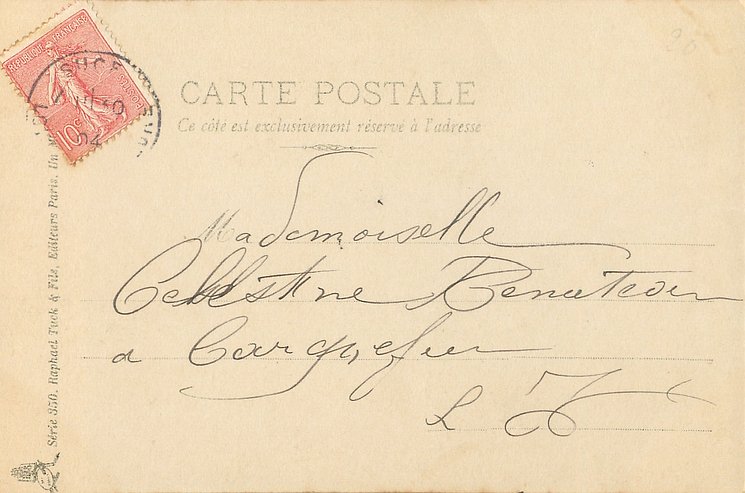 RÉPUBLIQUE FRANÇAISE
POSTES
10c
SUCE
04
CARTE POSTALE
Ce côté est exclusivement réservé à l'adresse
Mademoiselle
Celestine
a Carquefou
L I
Série 350. Raphael Tuck & Fils, Editeurs Paris.